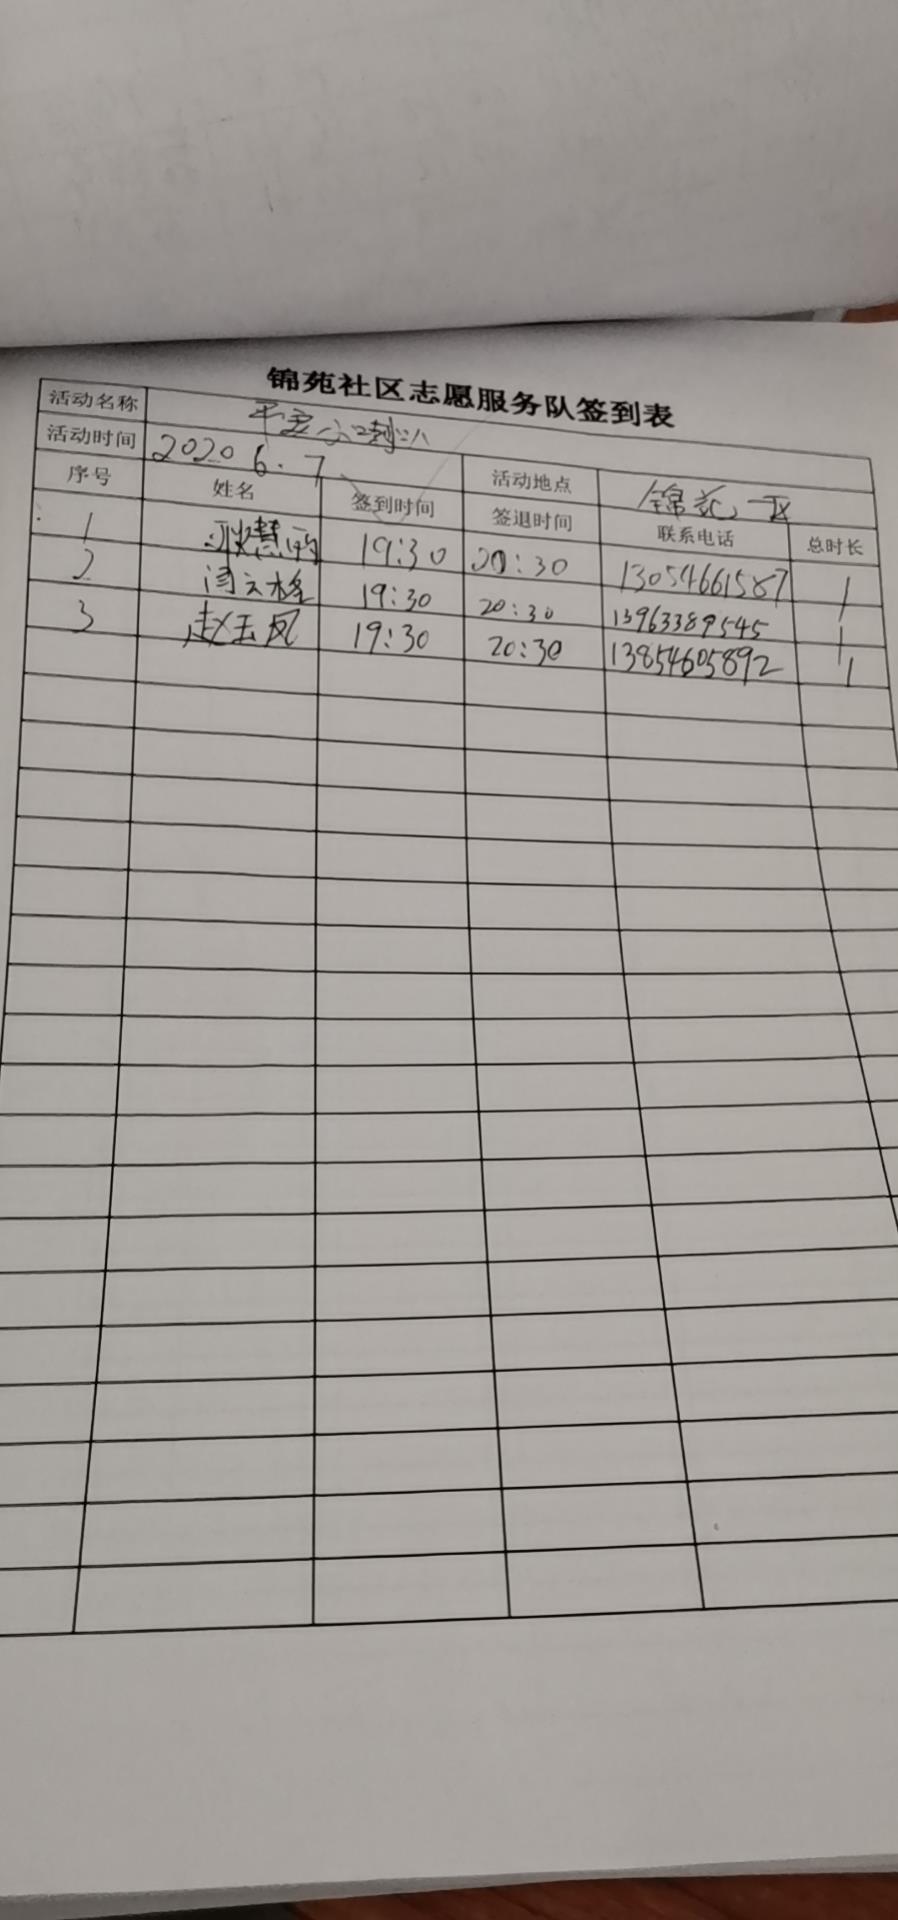 锦苑社区志愿服务队签到表
活动名称
活动时间 2020 6.7 活动地点 锦苑一区
序号 姓名 签到时间 签退时间 联系电话 总时长
1 耿慧 19:30 20:30 13054661587 1
2 闫云 19:30 20:30 13963389545 1
3 赵玉凤 19:30 20:30 13854605892 1